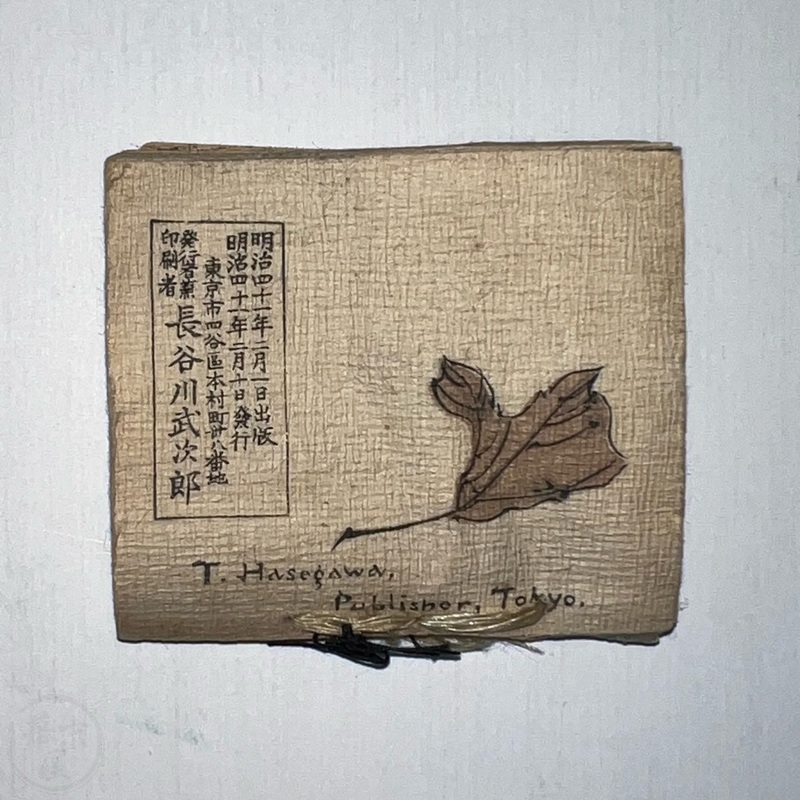 明治四十一年二月一日出版
明治四十一年二月十日發行
東京市四谷區本村町卅八番地
発行者兼
印刷者
長谷川武次郎
T. Hasegawa,
Publisher, Tokyo.